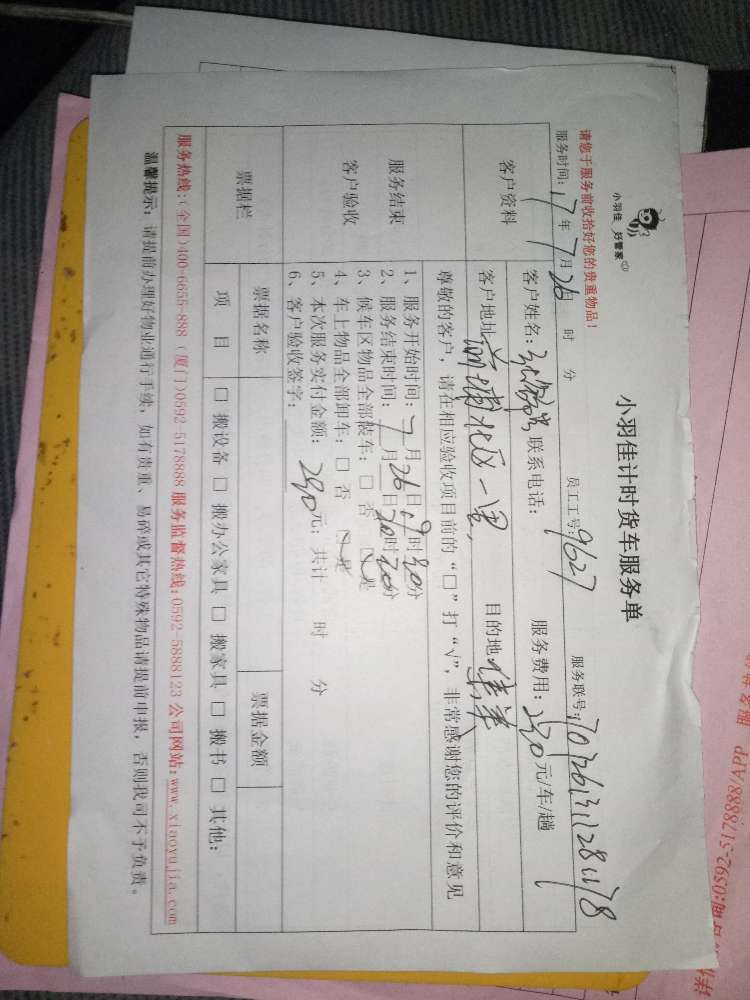 小羽佳 好管家
小羽佳计时货车服务单
请您于服务前收拾好您的贵重物品!
服务时间: 17年 7月 26日 时 分 员工工号: 9627 服务联号:
客户资料
客户姓名: 联系电话: 服务费用: 290 元/车/趟
客户地址: 前埔北区一里, 目的地: 集美
服务结束
客户验收
尊敬的客户,请在相应验收项目前的“□”打“√”,非常感谢您的评价和意见
1、服务开始时间: 7月 26日 19时 30分
2、服务结束时间: 7月 26日 20时 20分
3、候车区物品全部装车: □ 否 □ 是
4、车上物品全部卸车: □ 否 □ 是
5、本次服务实付金额: 290 元; 共计 时 分
6、客户验收签字:
票据栏
票据名称 票据金额
项 目 □ 搬设备 □ 搬办公家具 □ 搬家具 □ 搬书 □ 其他:
服务热线:(全国)400-6655-888 (厦门)0592-5178888 服务监督热线:0592-5888123 公司网站:www.xiaoyujia.com
温馨提示: 请提前办理好物业通行手续,如有贵重、易碎或其它特殊物品请提前申报,否则我司不予负责。
:0592-5178888/APP